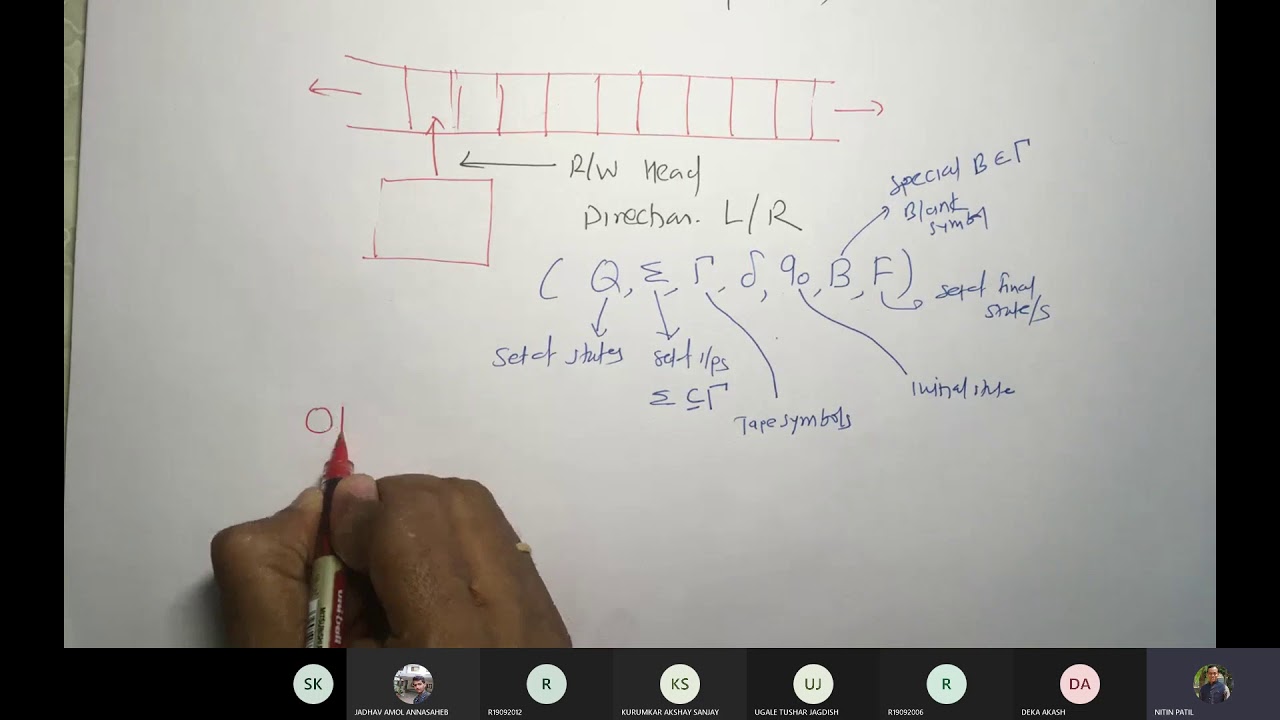 R/W Head
Direction. L/R
special B ∈ Γ
Blank
symbol
( Q, Σ, Γ, δ, q0, B, F )
set of final
state/s
set of states
set of i/ps
Σ ⊆ Γ
Tape symbols
Initial state
01
uni-ball
SK
JADHAV AMOL ANNASAHEB
R
R19092012
KS
KURUMKAR AKSHAY SANJAY
UJ
UGALE TUSHAR JAGDISH
R
R19092006
DA
DEKA AKASH
NITIN PATIL